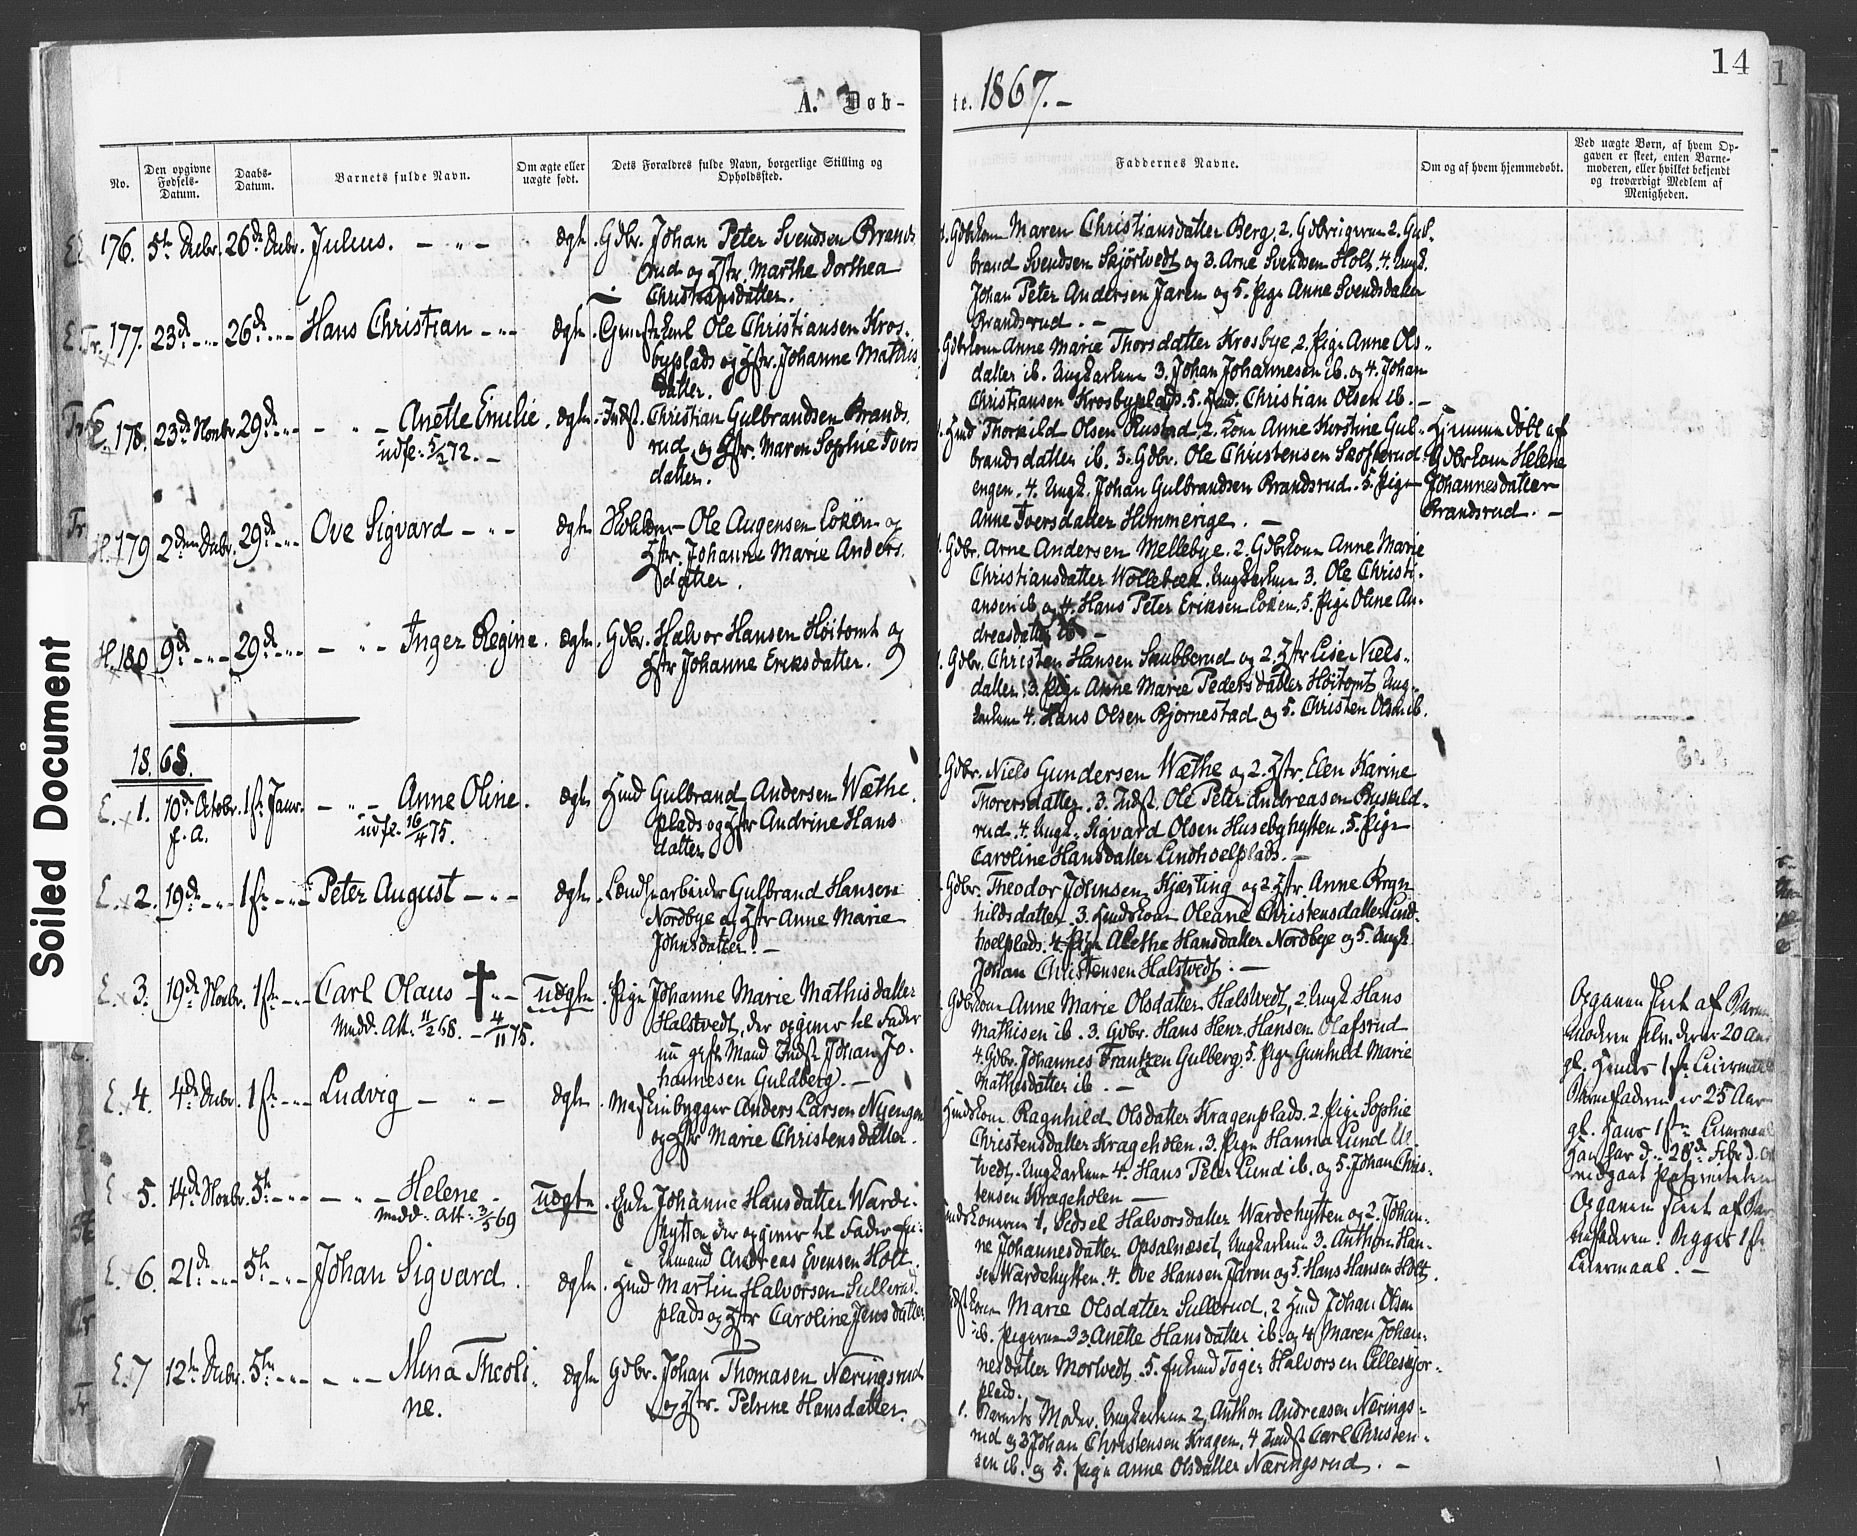 14
A. Døb-
te. 1867. -
No.
Den opgivne Fødsels-Datum.
Daabs-Datum.
Barnets fulde Navn.
Om ægte eller uægte født.
Dets Forældres fulde Navn, borgerlige Stilling og Opholdssted.
Faddernes Navne.
Om og af hvem hjemmedøbt.
Ved uægte Børn, af hvem Op-
gaven er skeet, enten Barne-
moderen, eller hvilket bekjendt
og troværdigt Medlem af
Menigheden.
176. 5te Decbr. 26de Decbr. Julius. - " - ægte. Gdbr. Johan Peter Svendsen Brands
rud og Hstr. Marthe Dorthea
Christiansdatter.
1. Gdbrkone Maren Christiansdatter Berg, 2. Gdbrigerne 2. Gul-
brand Svendsen Skjørtvedt og 3. Arne Svendsen Holt. 4. Ungk.
Johan Peter Andersen Jaren og 5. Pige Anne Svendsdatter
Brandsrud. -
E. Tr. 177. 23de - " - 26de " - Hans Christian - " - ægte. Ole Christiansen Kros-
byplads og Hstr. Johanne Mathis
datter.
Gdbrkone Anne Marie Thorsdatter Krosbye, 2. Pige Anne Ols-
datter ib. Ungkarlene 3. Johan Johannesen ib. og 4. Johan
Christiansen Krosbyplads. 5. Christian Olsen ib. -
178. 23de Novbr. 29de " - - " - Anette Emilie. ægte. Indst. Christian Gulbrandsen Brands
rud og Hstr. Maren Sophie Ivers
datter.
udfl. 5/2 72. -
Hmd Thorkild Olsen Rustad, 2. Kone Anne Kirstine Gul-
brandsdatter ib. 3. Gdbr. Ole Christensen Skofterud-
engen. 4. Ungk. Johan Gulbrandsen Brandsrud. 5. Pige
Anne Iversdatter Hemmerige. -
Hjemmedøbt af
Gdbrkone Helene
Johannesdatter
Brandsrud. -
H. 179 2den Decbr. 29de " - Ove Sigvard - " - ægte Ole Augensen Løken og
Hstr. Johanne Marie Anders-
datter.
Gdbr. Arne Andersen Mellebye. 2. Gdbrkone Anne Marie
Christiansdatter Wollebæk. Ungkarlene 3. Ole Christi-
ansen ib og 4. Hans Peter Eriksen Løken. 5. Pige Oline An-
dreasdatter ib. -
H. 180 9de - " - 29de " - - " - Inger Regine. ægte. Gdbr. Halvor Hansen Høitomt og
Hstr Johanne Eriksdatter.
Gdbr. Christen Hansen Skubberud og 2. Hstr Lise Niels-
datter. 3. Pige Anne Marie Pedersdatter Høitomt. Ung-
karlene 4. Hans Olsen Bjørnestad og 5. Christen Olsen ib.
1868.
E. 1. 10de Octobr. f. A. 1ste Janr. - " - Anne Oline. ægte Hmd Gulbrand Andersen Wæthe-
plads og Hstr Andrine Hans
datter
udfl. 16/4 75.
Gdbr. Niels Gundersen Wæthe og 2. Hstr. Elen Karine
Thorersdatter. 3. Indst. Ole Peter Andreasen
rud. 4. Ungk. Sigvard Olsen Husebyhytten. 5. Pige
Caroline Hansdatter Lindhoelplads. -
E. 2. 19de - " - 1ste - " - Peter August - " - ægte. Gulbrand Hansen
Nordbye og Hstr Anne Marie
Johnsdatter. -
Gdbr. Theodor Johnsen Kjæsting og 2. Hstr Anne Bryn-
hildsdatter. 3. Hmdskone Oleane Christensdatter Lind-
hoelplads. 4. Pige Alethe Hansdatter Nordbye og 5. Ungk.
Johan Christensen Halstvedt. -
E. 3. 19de Novbr. 1ste - " - Carl Olaus † " - uægte. Pige Johanne Marie Mathisdatter
Halstvedt, der opgiver til Fader
en gift Mand Indst Johan Jo-
hannesen Guldberg. -
Medd. Att. 11/2 68. - 4/11 75.
Gdbrkone Anne Marie Olsdatter Halstvedt, 2. Ungk. Hans
Mathisen ib. 3. Gdbr. Hans Henr. Hansen Olafsrud
4. Gdbr. Johannes Frantzen Gulberg. 5. Pige Gunhild Marie
Mathisdatter ib. -
Opgaven skeet af Barne
moderen selv, der er 20 Aar
gl. Hendes 1ste Leiermaal
Barnefaderen er 25 Aar
gl. Hans 1ste Leiermaal
Han har d. 28de Febr d.
vedgaaet Paterniteten
E. 4. 4de Decbr. 1ste - " - Ludvig - " - ægte. Anders Larsen Nyengen
og Hstr Marie Christensdatter.
Hmdskone Ragnhild Olsdatter Kragenplads. 2. Pige Sophie
Christensdatter Krageholen. 3. Pige Hanna Lund
tvedt. Ungkarlene 4. Hans Peter Lund ib. og 5. Johan Chris-
tensen Krageholen -
5. 14de Novbr. 5te - " - - " - Helene - uægte. Enke Johanne Hansdatter Warde-
hytten der opgiver til Fader En-
kemand Andreas Evensen Holt.
Medd. Att. 3/5 69
Hmdskonerne 1. Sidsel Halvorsdatter Wardehytten og 2. Johan-
ne Johannesdatter Opsalnæset, Ungkarlene 3. Anthon Han-
sen Wardehytten. 4. Ove Hansen Jdren og 5. Hans Hansen Holt.
Opgaven skeet af Bar
nefaderen. Begges 1ste
Leiermaal. -
E. 6. 21de " - 5te - " - Johan Sigvard. ægte. Hmd Martin Halvorsen Sullerud-
plads og Hstr Caroline Jensdatter
Indstkone Marie Olsdatter Sullerud, 2 Hmd Johan Olsen
ib. Pigerne 3 Anette Hansdatter ib. og 4 Maren Johan-
nesdatter Mortvedt. 5. Enkmd Toger Halvorsen Lilleskjor-
plads.
E. 7 12te Decbr. 5te - " - - " - Mina Theoli-
ne.
ægte Gdbr. Johan Thomasen Næringsrud
og Hstr. Petrine Hansdatter.
1. Barnets Moder. Ungkarlene 2, Anthon Andreasen Nærings-
rud og 3 Johan Christensen Kragen. 4 Indst Carl Christen-
sen ib. og 5. Pige Anne Olsdatter Næringsrud. -
Soiled Document